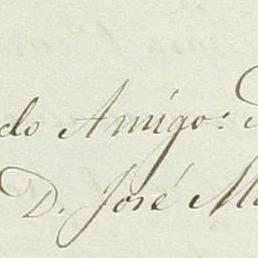 do Amigo:
D. José M